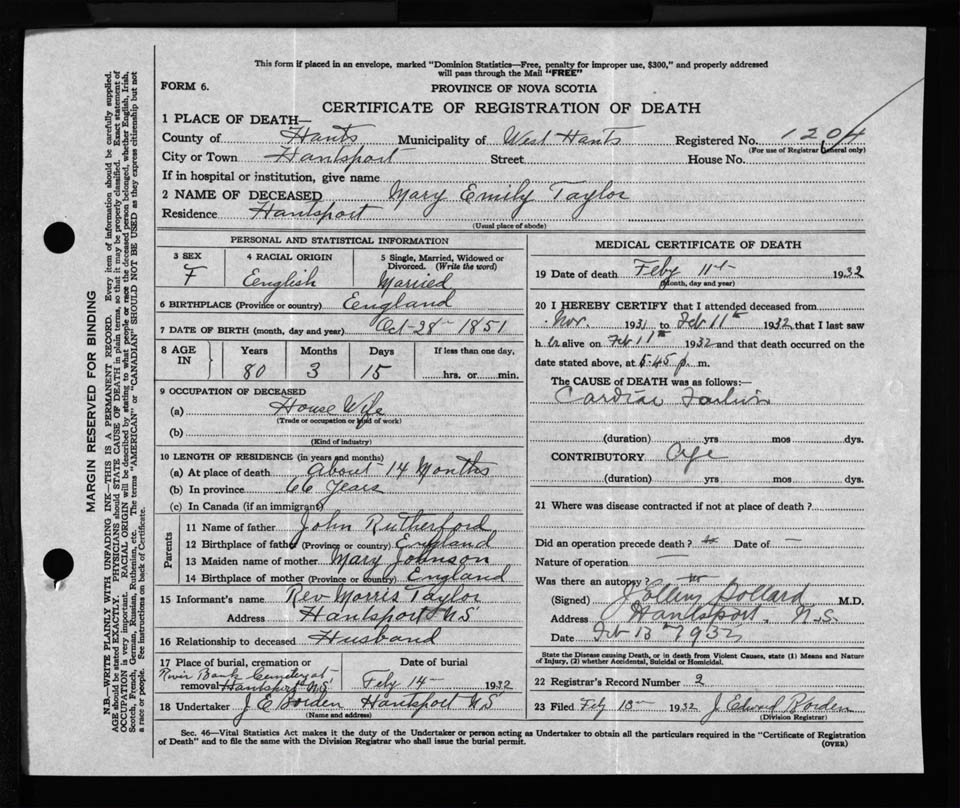 This form if placed in an envelope, marked "Dominion Statistics—Free, penalty for improper use, $300," and properly addressed
will pass through the Mail "FREE"
FORM 6.
PROVINCE OF NOVA SCOTIA
CERTIFICATE OF REGISTRATION OF DEATH
1 PLACE OF DEATH—
County of Hants Municipality of West Hants Registered No. 1204
(For use of Registrar General only)
City or Town Hantsport Street House No.
If in hospital or institution, give name
2 NAME OF DECEASED Mary Emily Taylor
Residence Hantsport
(Usual place of abode)
PERSONAL AND STATISTICAL INFORMATION
3 SEX F
4 RACIAL ORIGIN English
5 Single, Married, Widowed or Divorced. (Write the word) Married
6 BIRTHPLACE (Province or country) England
7 DATE OF BIRTH (month, day and year) Oct 28th 1851
8 AGE IN Years Months Days If less than one day,
80 3 15 hrs. or min.
9 OCCUPATION OF DECEASED
(a) House Wife
(Trade or occupation or kind of work)
(b)
(Kind of industry)
10 LENGTH OF RESIDENCE (in years and months)
(a) At place of death about 14 Months
(b) In province 66 Years
(c) In Canada (if an immigrant)
Parents
11 Name of father John Rutherford
12 Birthplace of father (Province or country) England
13 Maiden name of mother Mary Johnson
14 Birthplace of mother (Province or country) England
15 Informant's name Rev Morris Taylor
Address Hantsport NS
16 Relationship to deceased Husband
17 Place of burial, cremation or removal River Bank Cemetery at Hantsport N.S.
Date of burial Feby 14th 1932
18 Undertaker J C Borden Hantsport NS
(Name and address)
MEDICAL CERTIFICATE OF DEATH
19 Date of death Feby 11th 1932
(Month, day and year)
20 I HEREBY CERTIFY that I attended deceased from
Nov. 1931 to Feb 11th 1932 that I last saw
h er alive on Feb 11th 1932 and that death occurred on the
date stated above, at 5.45 p. m.
The CAUSE OF DEATH was as follows:—
Cardiac Failure
(duration) yrs mos dys.
CONTRIBUTORY Age
(duration) yrs. mos. dys.
21 Where was disease contracted if not at place of death?
Did an operation precede death? no Date of —
Nature of operation —
Was there an autopsy? no
(Signed) Dollard M.D.
Address Hantsport, N.S.
Date Feb 13th 1932
State the Disease causing Death, or in death from Violent Causes, state (1) Means and Nature
of Injury, (2) whether Accidental, Suicidal or Homicidal.
22 Registrar's Record Number 2
23 Filed Feby 13th 1932 J. Edward Borden
(Division Registrar)
Sec. 46—Vital Statistics Act makes it the duty of the Undertaker or person acting as Undertaker to obtain all the particulars required in the "Certificate of Registration
of Death" and to file the same with the Division Registrar who shall issue the burial permit.
(OVER)
MARGIN RESERVED FOR BINDING
N.B.—WRITE PLAINLY WITH UNFADING INK—THIS IS A PERMANENT RECORD. Every item of information should be carefully supplied.
AGE should be stated EXACTLY. PHYSICIANS should STATE CAUSE OF DEATH in plain terms, so that it may be properly classified. Exact statement of
OCCUPATION is very important. RACIAL ORIGIN will be described by stating to what people or race the deceased person belonged, whether English, Irish,
Scotch, French, German, Russian, Ruthenian, etc. The terms "AMERICAN" or "CANADIAN" SHOULD NOT BE USED as they express citizenship but not
a race or people. See instructions on back of Certificate.